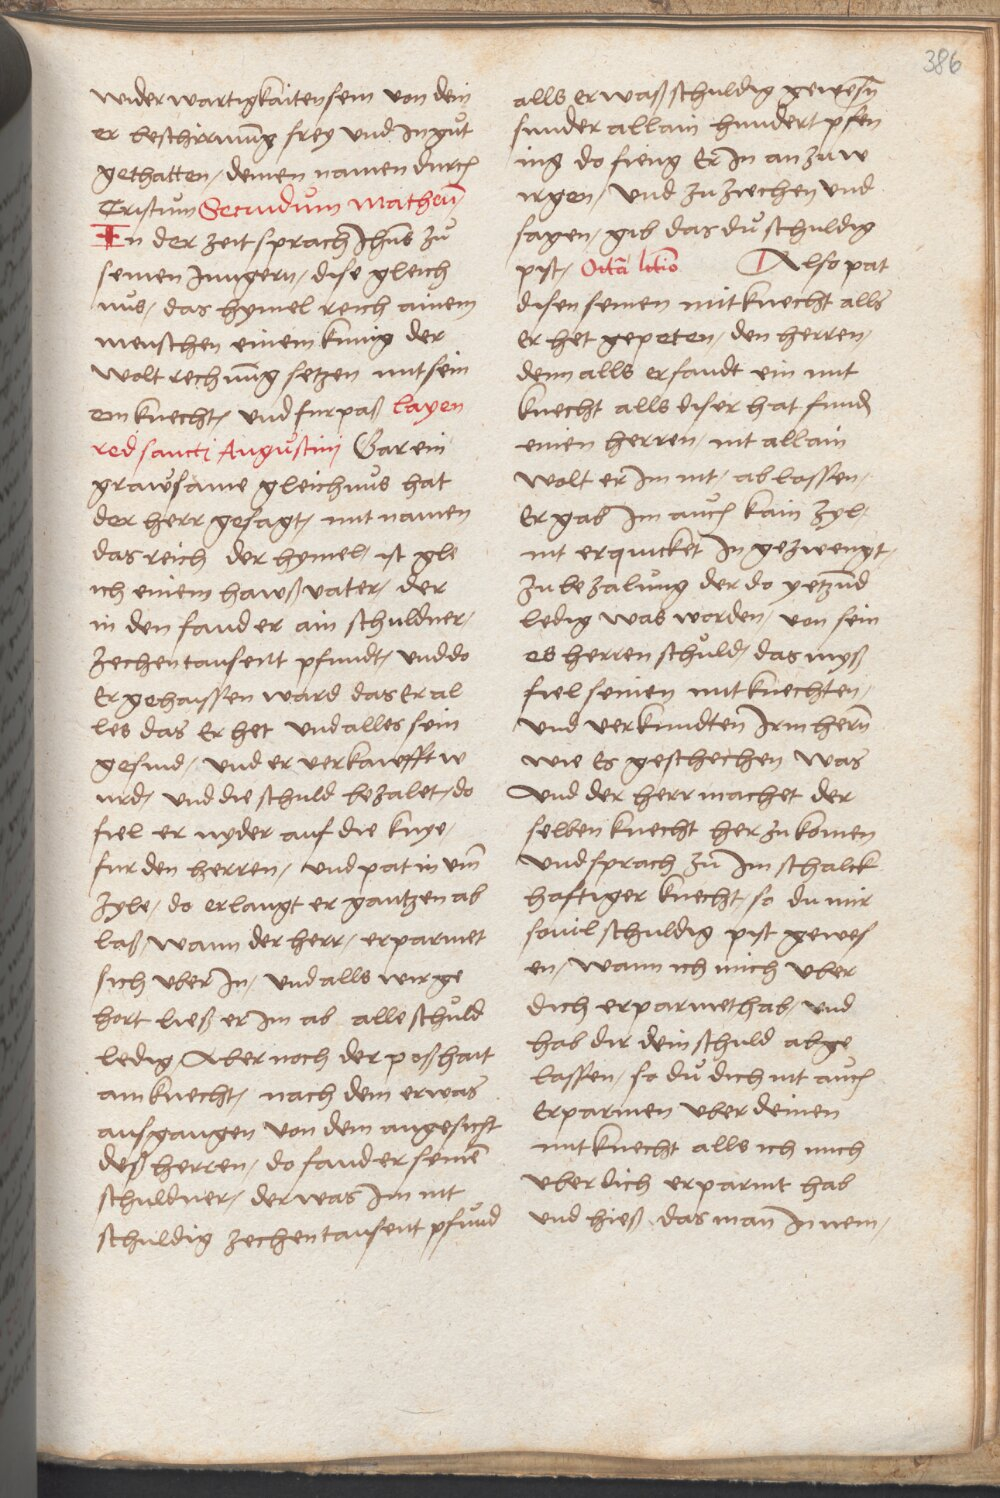 386
widerwartigkaiten sein von dein
er beschirmung frey und in gut
gethatten, deinen namen durch
Cristum Secundum Matheum
In der zeit sprach Ihus zu
seinen Jungern, dise gleich
nus, das hymel reich ainem
menschen einem kunig der
wolt rechnung setzen mit sein
em knecht, und furpaß layen
red sancti Augustini Gar ein
grawsame gleichnus hat
der herr gesagt, mit namen
das reich der hymel, ist gle
ich einem hawßvater, der
in den fand er ain schuldner,
zechentausent pfundt, und do
er gehaissen ward das er al
les das er het und alles sein
gesind, und er verkaufft w
urd, und die schuld bezalet, do
fiel er nyder auf die knye,
fur den herren, und pat in um
zyle, do erlangt er gantzen ab
laß, wann der herr, erparmet
sich uber in, und alls wir ge
hort ließ er im ab alle schuld
ledig, Aber noch der poßhait
am knecht, nach dem er was
ausgangen von dem angesicht
deß herren, do fand er seinen
schuldner, der was im nit
schuldig zechentausent pfund
alls er waß schuldig gewesn
sunder allain hundert pfen
ing do fieng er in an zu w
urgen, und zu ziechen und
sagen, gib das du schuldig
pist, Octa lectio Also pat
disen seinen mitknecht alls
er het gepeten, den herren,
denn alls er fandt ein mit
knecht alls diser hat fund
einen herren, nit allain
wolt er im nit, ab lassen,
er gab im auch kain zyl,
nit erquicket in gezwengt,
zu bezalung der do yetzund
ledig was worden, von sein
es herren schuld, das myß
fiel seinen mitknechten,
und verkundten irm hern
wie es geschechen was
Und der herr machet der
selben knecht her zu komen
und sprach zu im schalck
haftiger knecht, so du mir
sovil schuldig pist gewes
en, wann ich mich uber
dich erparmet hab, und
hab dir dein schuld abge
lassen, so du dich nit auch
erparmen uber deinen
mitknecht alls ich mich
uber dich erparmt hab
und hieß das man in nem,